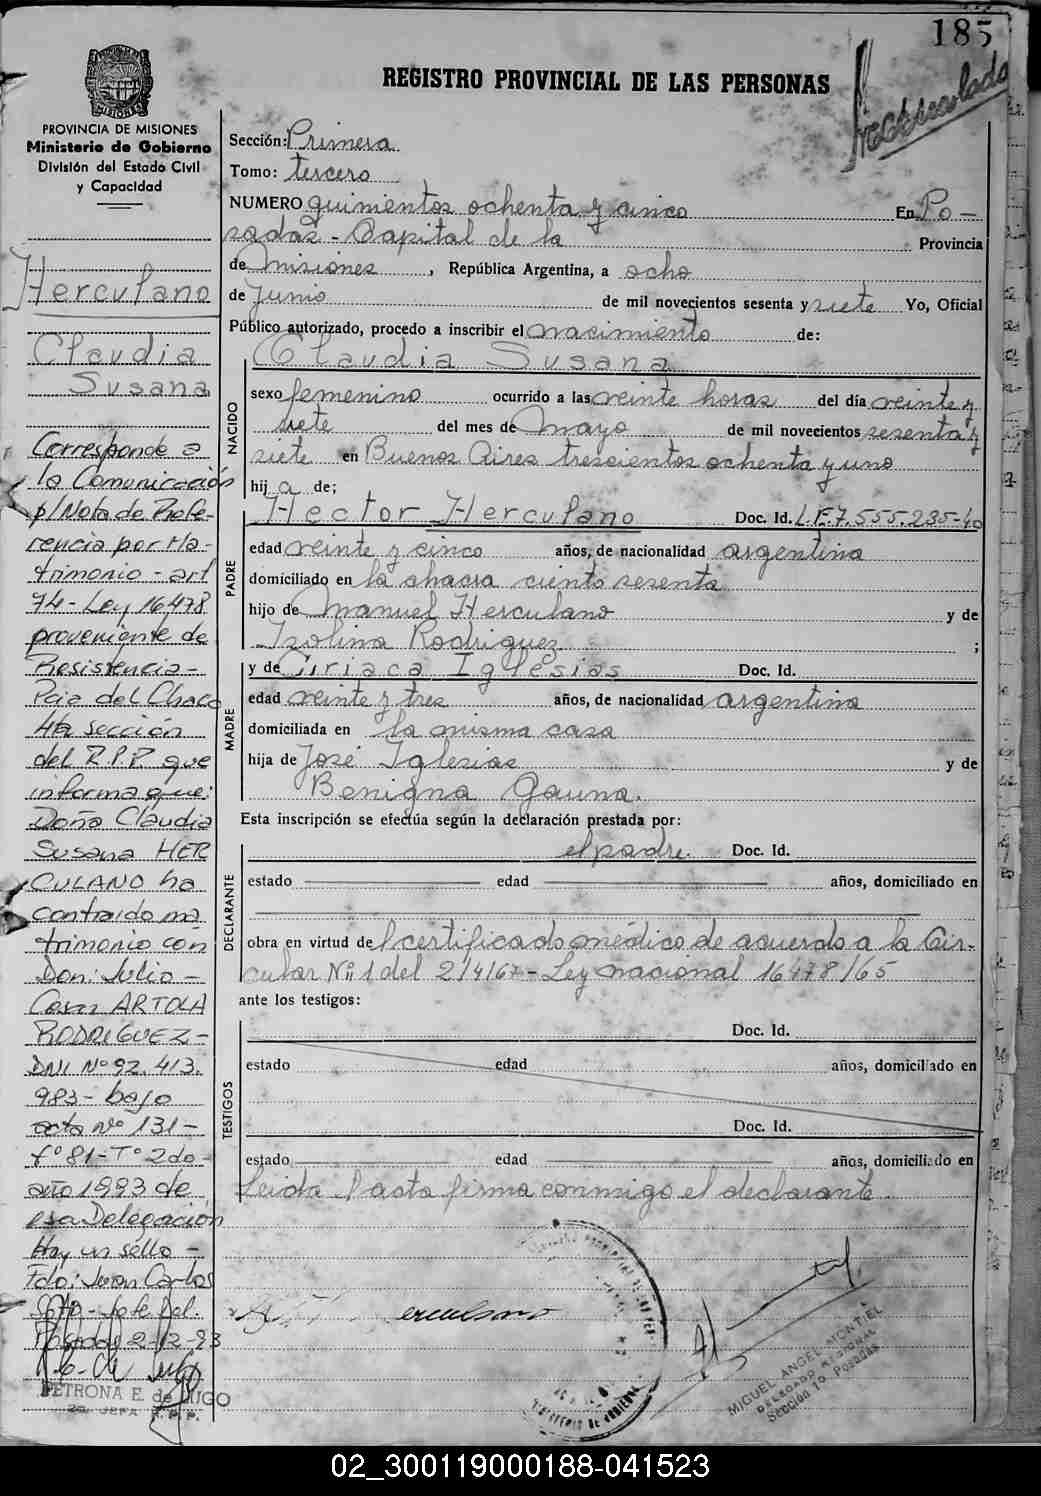 185
REGISTRO PROVINCIAL DE LAS PERSONAS
Matriculado
PROVINCIA DE MISIONES
Ministerio de Gobierno
División del Estado Civil
y Capacidad
Herculano
Claudia
Susana
Corresponde a
la Comunicación
p/Nota de Refe-
rencia por Ma-
trimonio - art
74 - Ley 16478
proveniente de
Resistencia -
Pcia del Chaco
4ta sección
del R.P.P. que
informa que:
Doña Claudia
Susana HER
CULANO ha
contraido ma
trimonio con
Don: Julio -
Cesar ARTOLA
RODRIGUEZ -
DNI Nº 92.413.
983 - bajo
acta Nº 131 -
fº 81 - Tº 2do -
año 1993 de
esa Delegación
Hay un sello -
Fdo: Juan Carlos
Soto - Jefe Del.
Posadas 2-12-93
PETRONA E. de LUGO
2a. JEFA R.P.P.
Sección: Primera
Tomo: tercero
NUMERO quinientos ochenta y cinco En Po -
sadas - Capital de la Provincia
de Misiones, República Argentina, a ocho
de Junio de mil novecientos sesenta y siete Yo, Oficial
Público autorizado, procedo a inscribir el nacimiento de:
Claudia Susana
NACIDO
sexo femenino ocurrido a las veinte horas del día veinte y
siete del mes de Mayo de mil novecientos sesenta y
siete en Buenos Aires trescientos ochenta y uno
hij a de;
PADRE
Hector Herculano Doc. Id. L.E.7.555.235-40
edad veinte y cinco años, de nacionalidad argentina
domiciliado en la chacra ciento sesenta
hijo de Manuel Herculano y de
Isolina Rodriguez ;
MADRE
y de Ciriaca Iglesias Doc. Id.
edad veinte y tres años, de nacionalidad argentina
domiciliada en la misma casa
hija de José Iglesias y de
Benigna Gauna.
Esta inscripción se efectúa según la declaración prestada por:
DECLARANTE
el padre. Doc. Id.
estado edad años, domiciliado en
obra en virtud del certificado médico de acuerdo a la Cir-
cular Nº 1 del 2/4/67 - Ley nacional 16478/65
ante los testigos:
TESTIGOS
Doc. Id.
estado edad años, domiciliado en
Doc. Id.
estado edad años, domiciliado en
Leida el acta firma conmigo el declarante.
Herculano
MIGUEL ANGEL MONTIEL
DELEGADO REGIONAL
Sección 1º Posadas
02_300119000188-041523